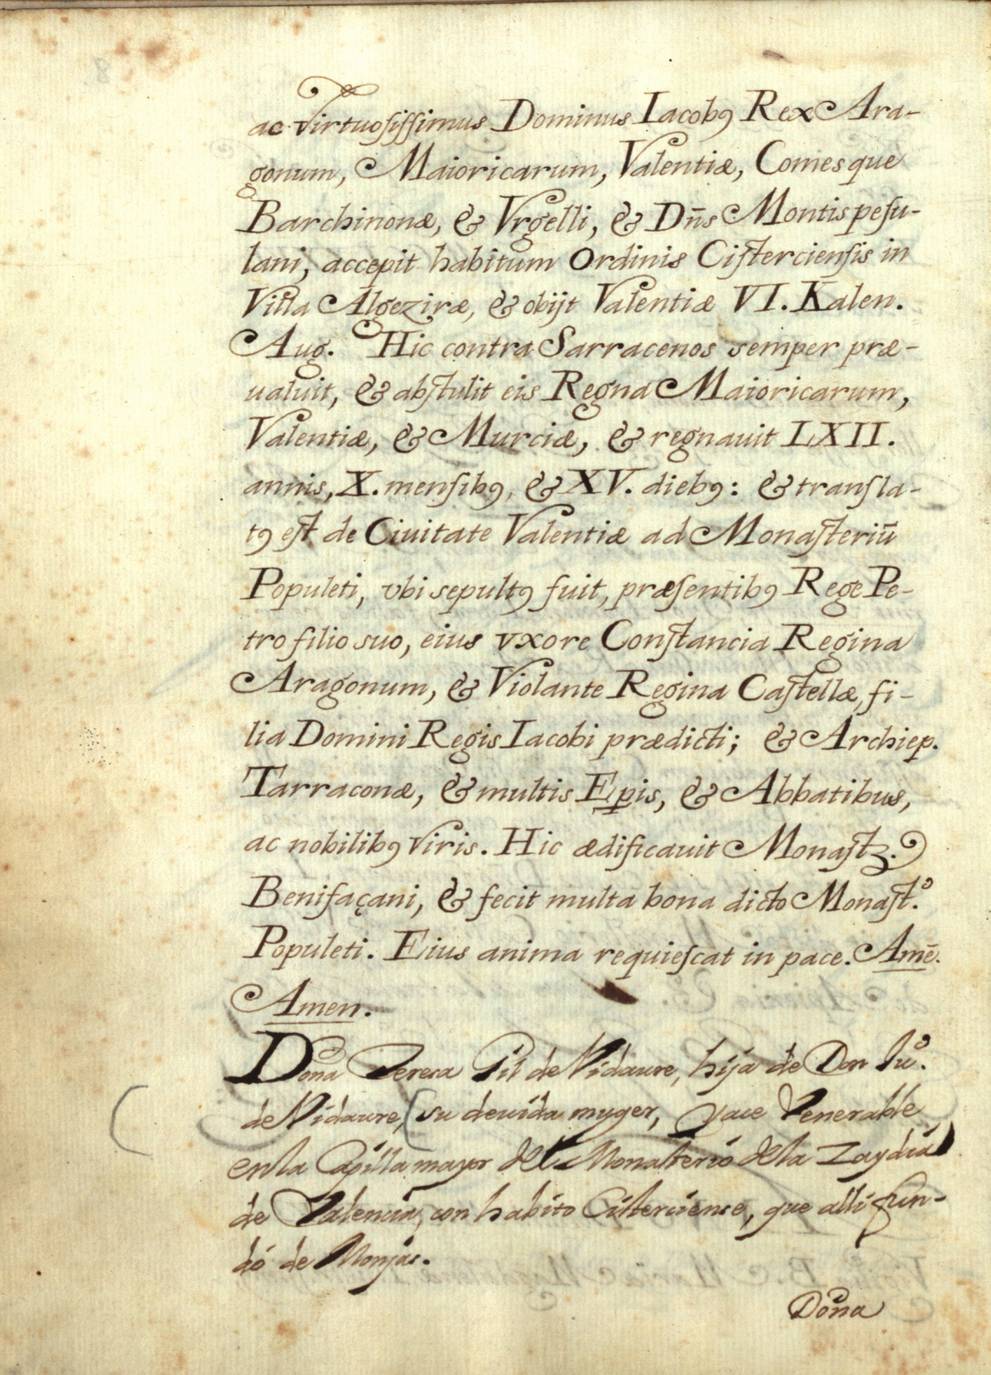 ac virtuosissimus Dominus Iacobꝰ Rex Ara-
gonum, Maioricarum, Valentiæ, Comesque
Barchinonæ, & Vrgelli, & Dn̄s Montispesu-
lani, accepit habitum Ordinis Cisterciensis in
Villa Algeziræ, & obijt Valentiæ VI. Kalen.
Aug. Hic contra Sarracenos semper præ-
ualuit, & abstulit eis Regna Maioricarum,
Valentiæ, & Murciæ, & regnauit LXII.
annis, X. mensibꝰ, & XV. diebꝰ: & transla-
tꝰ est de Ciuitate Valentiæ ad Monasteriū
Populeti, vbi sepultꝰ fuit, præsentibꝰ Rege Pe-
tro filio suo, eius vxore Constancia Regina
Aragonum, & Violante Regina Castellæ, fi-
lia Domini Regis Iacobi prædicti; & Archiep.
Tarraconæ, & multis Ep̄is, & Abbatibus,
ac nobilibꝰ viris. Hic ædificauit Monastꝫ.
Benifaçani, & fecit multa bona dicto Monast.º
Populeti. Eius anima requiescat in pace. Amē.
Amen.
Dona Teresa Gil de Vidaure, hija de Don Ju.º
de Vidaure, (su deuida muger, yace Venerable
en la Capilla mayor del Monasterio de la Zaydia
de Valencia, con habito Cisterciense, que alli fun-
dó de Monjas.
Dona